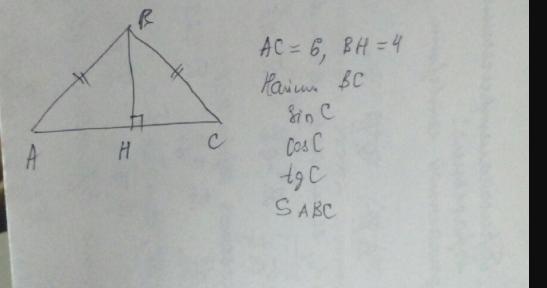 B
A
H
C
AC = 6, BH = 4
Найти BC
sin C
cos C
tg C
S ABC